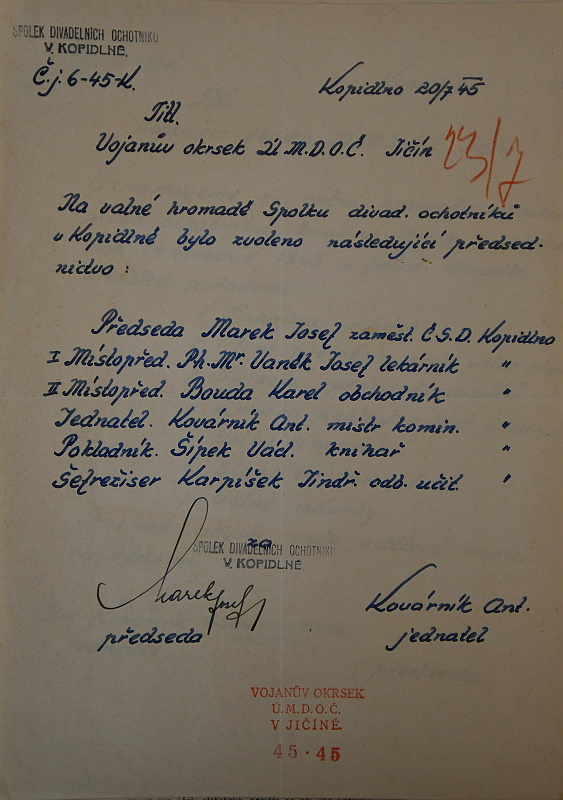 SPOLEK DIVADELNÍCH OCHOTNÍKŮ
V KOPIDLNĚ.
Č.j. 6-45-K.
Kopidlno 20/7 45
Titl.
Vojanův okrsek Ú.M.D.O.Č. Jičín
23/7
Na valné hromadě Spolku divad. ochotníků
v Kopidlně bylo zvoleno následující předsed-
nictvo:
Předseda Marek Josef zaměst. Č.S.D. Kopidlno
I Místopřed. Ph. Mr. Vaněk Josef lekárník "
II Místopřed. Bouda Karel obchodník "
Jednatel. Kovárník Ant. mistr komin. "
Pokladník. Šípek Václ. knihař "
Šefrežiser Karpíšek Jindř. odb. učit. "
za
SPOLEK DIVADELNÍCH OCHOTNÍKŮ
V KOPIDLNĚ.
Marek Josef
předseda
Kovárník Ant.
jednatel
VOJANŮV OKRSEK
Ú.M.D.O.Č.
V JIČÍNĚ.
45 · 45